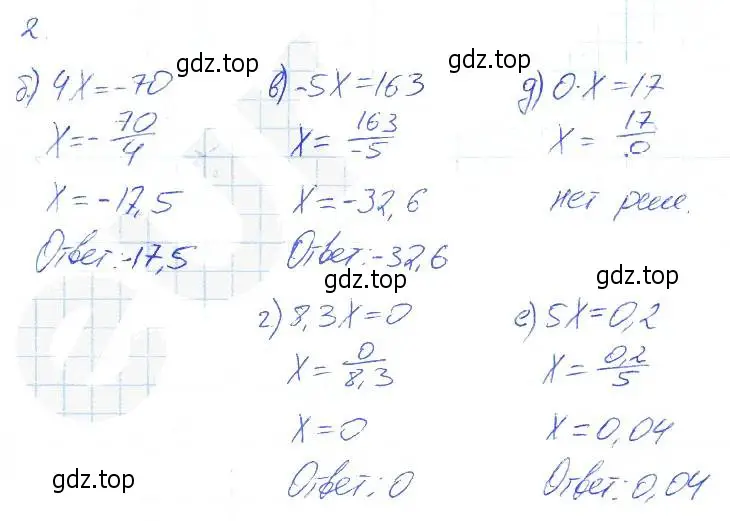 2.
gdz.top
gdz.top
б) 4X=-70
X=-70/4
X=-17,5
Ответ:-17,5
в) -5X=163
X=163/-5
X=-32,6
Ответ:-32,6
д) 0·X=17
X=17/0
нет реш.
gdz.top
gdz.top
г) 8,3X=0
X=0/8,3
X=0
Ответ: 0
е) 5X=0,2
X=0,2/5
X=0,04
Ответ: 0,04
gdz.top
gdz.top